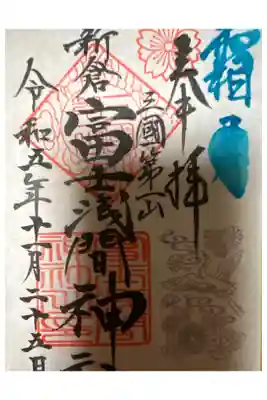 霜月
奉拝
三國第一山
富士浅間神社
新倉
令和五年十一月二十五日